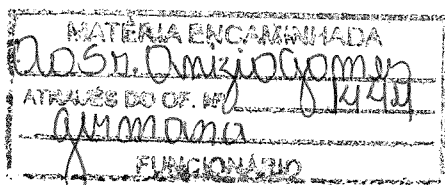 MATÉRIA ENCAMINHADA
ao Sr. Anizio Gomes
ATRAVÉS DO OF. Nº 1444
Germana
FUNCIONÁRIO